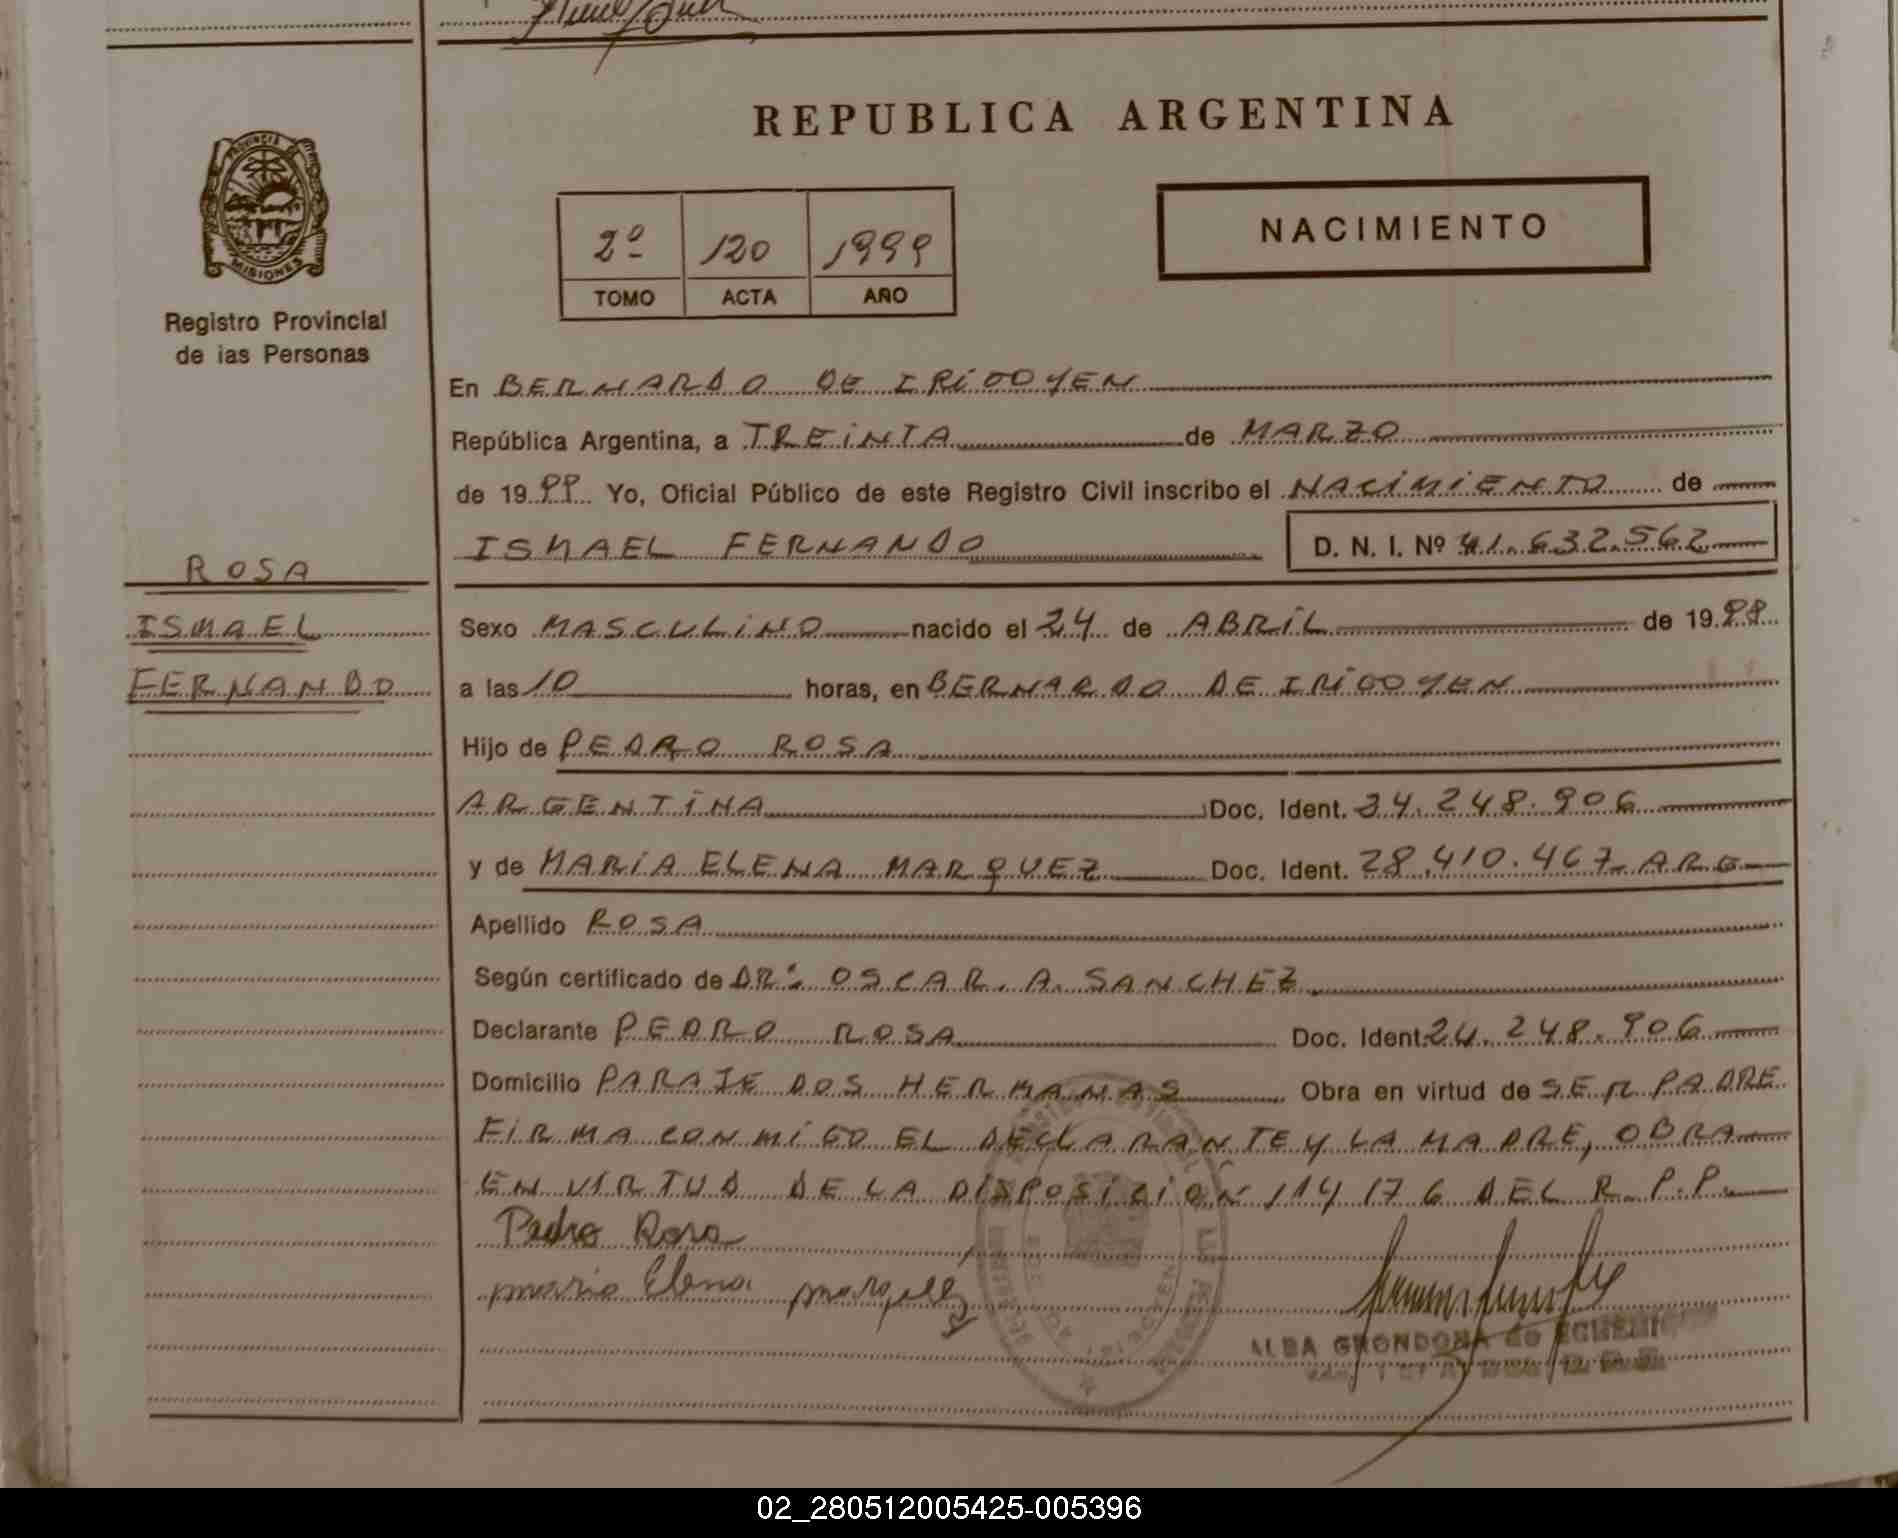 REPUBLICA ARGENTINA
PROVINCIA DE
MISIONES
Registro Provincial
de las Personas
2º 120 1999
TOMO ACTA AÑO
NACIMIENTO
En BERNARDO DE IRIGOYEN
República Argentina, a TREINTA de MARZO
de 1999 Yo, Oficial Público de este Registro Civil inscribo el NACIMIENTO de
ISMAEL FERNANDO D. N. I. Nº 41.632.562
ROSA
ISMAEL
FERNANDO
Sexo MASCULINO nacido el 24 de ABRIL de 1998
a las 10 horas, en BERNARDO DE IRIGOYEN
Hijo de PEDRO ROSA
ARGENTINA Doc. Ident. 34.248.906
y de MARIA ELENA MARQUEZ Doc. Ident. 28.410.467 ARG
Apellido ROSA
Según certificado de DR: OSCAR. A. SANCHEZ
Declarante PEDRO ROSA Doc. Ident 24.248.906
Domicilio PARAJE DOS HERMANAS Obra en virtud de SER PADRE
FIRMA CONMIGO EL DECLARANTE Y LA MADRE, OBRA
EN VIRTUD DE LA DISPOSICIÓN 114/76 DEL R.P.P.
Pedro Rosa
maria Elena marquez
ALBA GRONDONA de
02_280512005425-005396